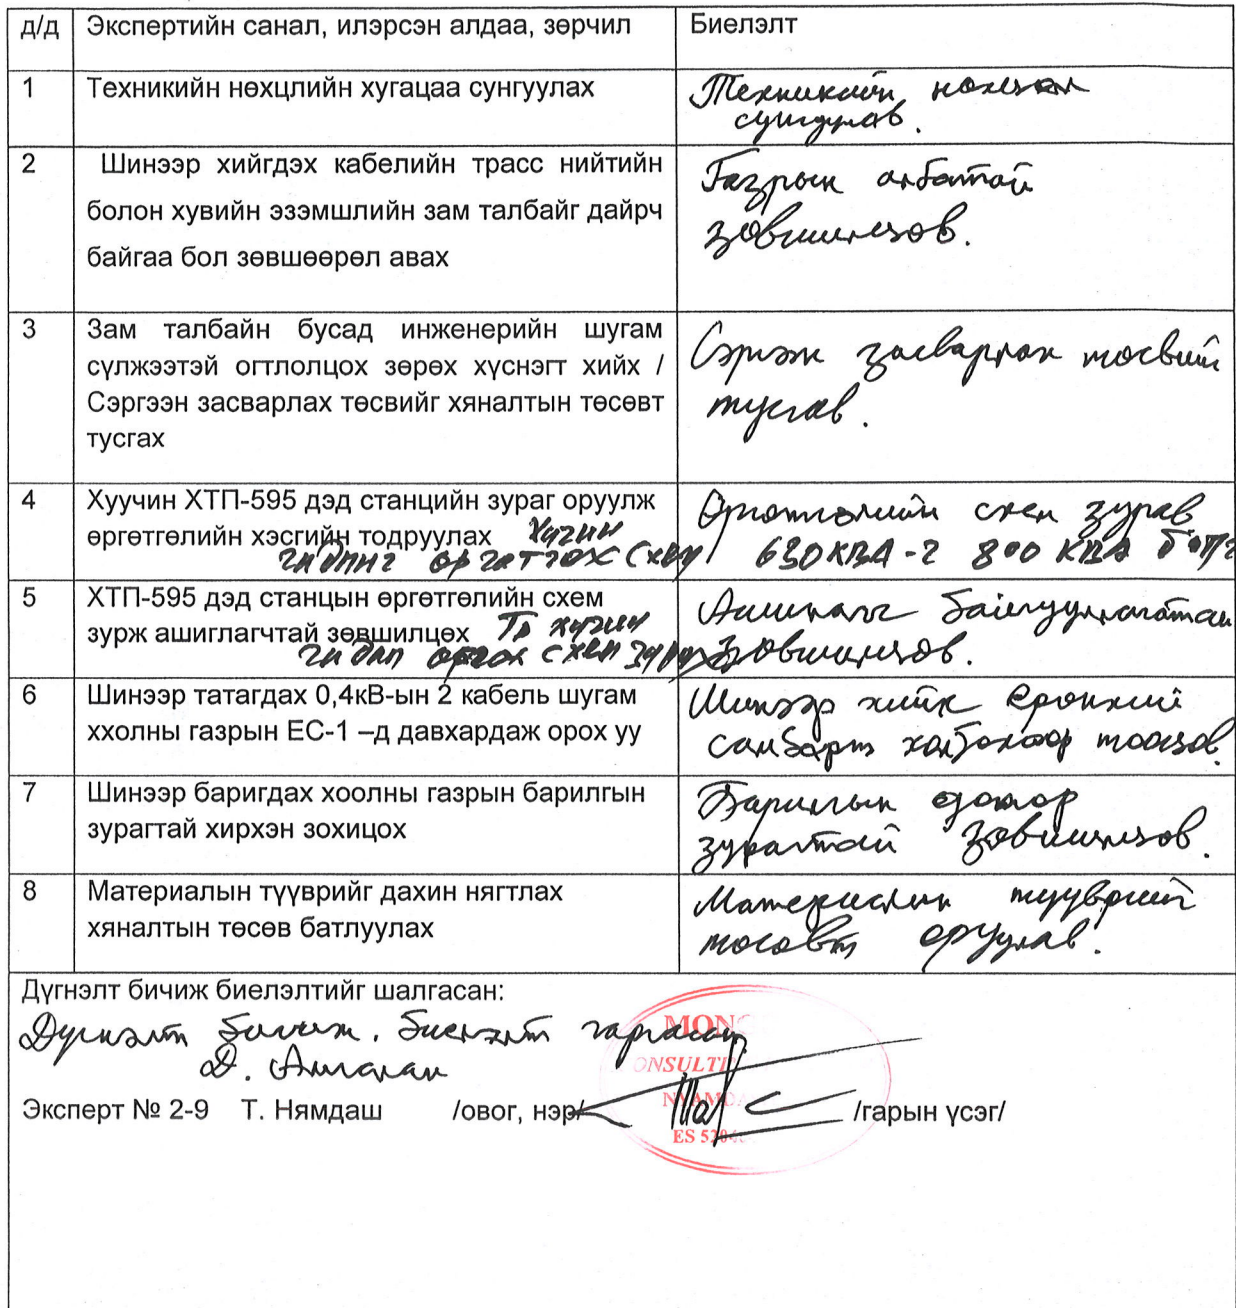 д/д Экспертийн санал, илэрсэн алдаа, зөрчил Биелэлт
1 Техникийн нөхцлийн хугацаа сунгуулах Техникийн нөхцөл
сунгуулав.
2 Шинээр хийгдэх кабелийн трасс нийтийн
болон хувийн эзэмшлийн зам талбайг дайрч
байгаа бол зөвшөөрөл авах
Газрын албатай
зөвшилцөв.
3 Зам талбайн бусад инженерийн шугам
сүлжээтэй огтлолцох зөрөх хүснэгт хийх /
Сэргээн засварлах төсвийг хяналтын төсөвт
тусгах
Сэргээн засварлах төсвийг
тусгав.
4 Хуучин ХТП-595 дэд станцийн зураг оруулж
өргөтгөлийн хэсгийн тодруулах Хүчин
чадлыг өргөтгөх схем
Өргөтгөлийн схем зурав
630 КВА-г 800 КВА
5 ХТП-595 дэд станцын өргөтгөлийн схем
зурж ашиглагчтай зөвшилцөх ТП хүчин
схем
Ашиглагч байгууллагатай
зөвшилцөв.
6 Шинээр татагдах 0,4кВ-ын 2 кабель шугам
ххолны газрын ЕС-1 –д давхардаж орох уу
Шинээр хийх ерөнхий
самбарт холбохоор тооцов.
7 Шинээр баригдах хоолны газрын барилгын
зурагтай хирхэн зохицох
Барилгын дотор
зурагтай зөвшилцөв.
8 Материалын түүврийг дахин нягтлах
хяналтын төсөв батлуулах
Материалын түүврийг
төсөвт оруулав.
Дүгнэлт бичиж биелэлтийг шалгасан:
Дүгнэлт бичиж, биелэлт гаргасан
MONS
ONSULTI
Эксперт № 2-9 Т. Нямдаш /овог, нэр/ /гарын үсэг/